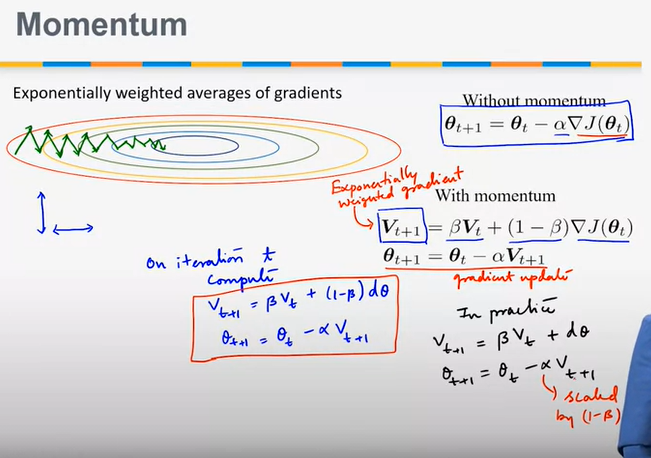 Momentum
Exponentially weighted averages of gradients
Without momentum
θₜ₊₁ = θₜ − α∇J(θₜ)
Exponentially
weighted gradient
With momentum
Vₜ₊₁ = βVₜ + (1 − β)∇J(θₜ)
θₜ₊₁ = θₜ − αVₜ₊₁
gradient update
On iteration t
compute
Vₜ₊₁ = βVₜ + (1-β) dθ
θₜ₊₁ = θₜ − αVₜ₊₁
In practice
Vₜ₊₁ = βVₜ + dθ
θₜ₊₁ = θₜ − αVₜ₊₁
scaled
by (1-β)